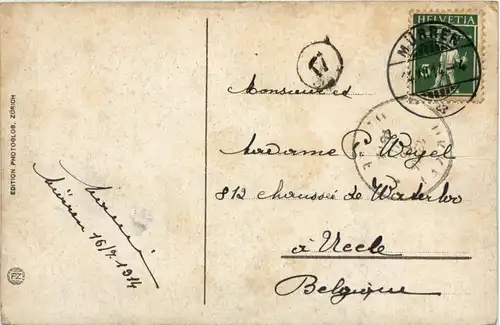 HELVETIA
MÜRREN
17
Monsieur et
Madame C. Weyel
812 chaussée de Waterloo
à Uccle
Belgique
Mürren 16/7. 1914
EDITION PHOTOGLOB, ZÜRICH
PZ